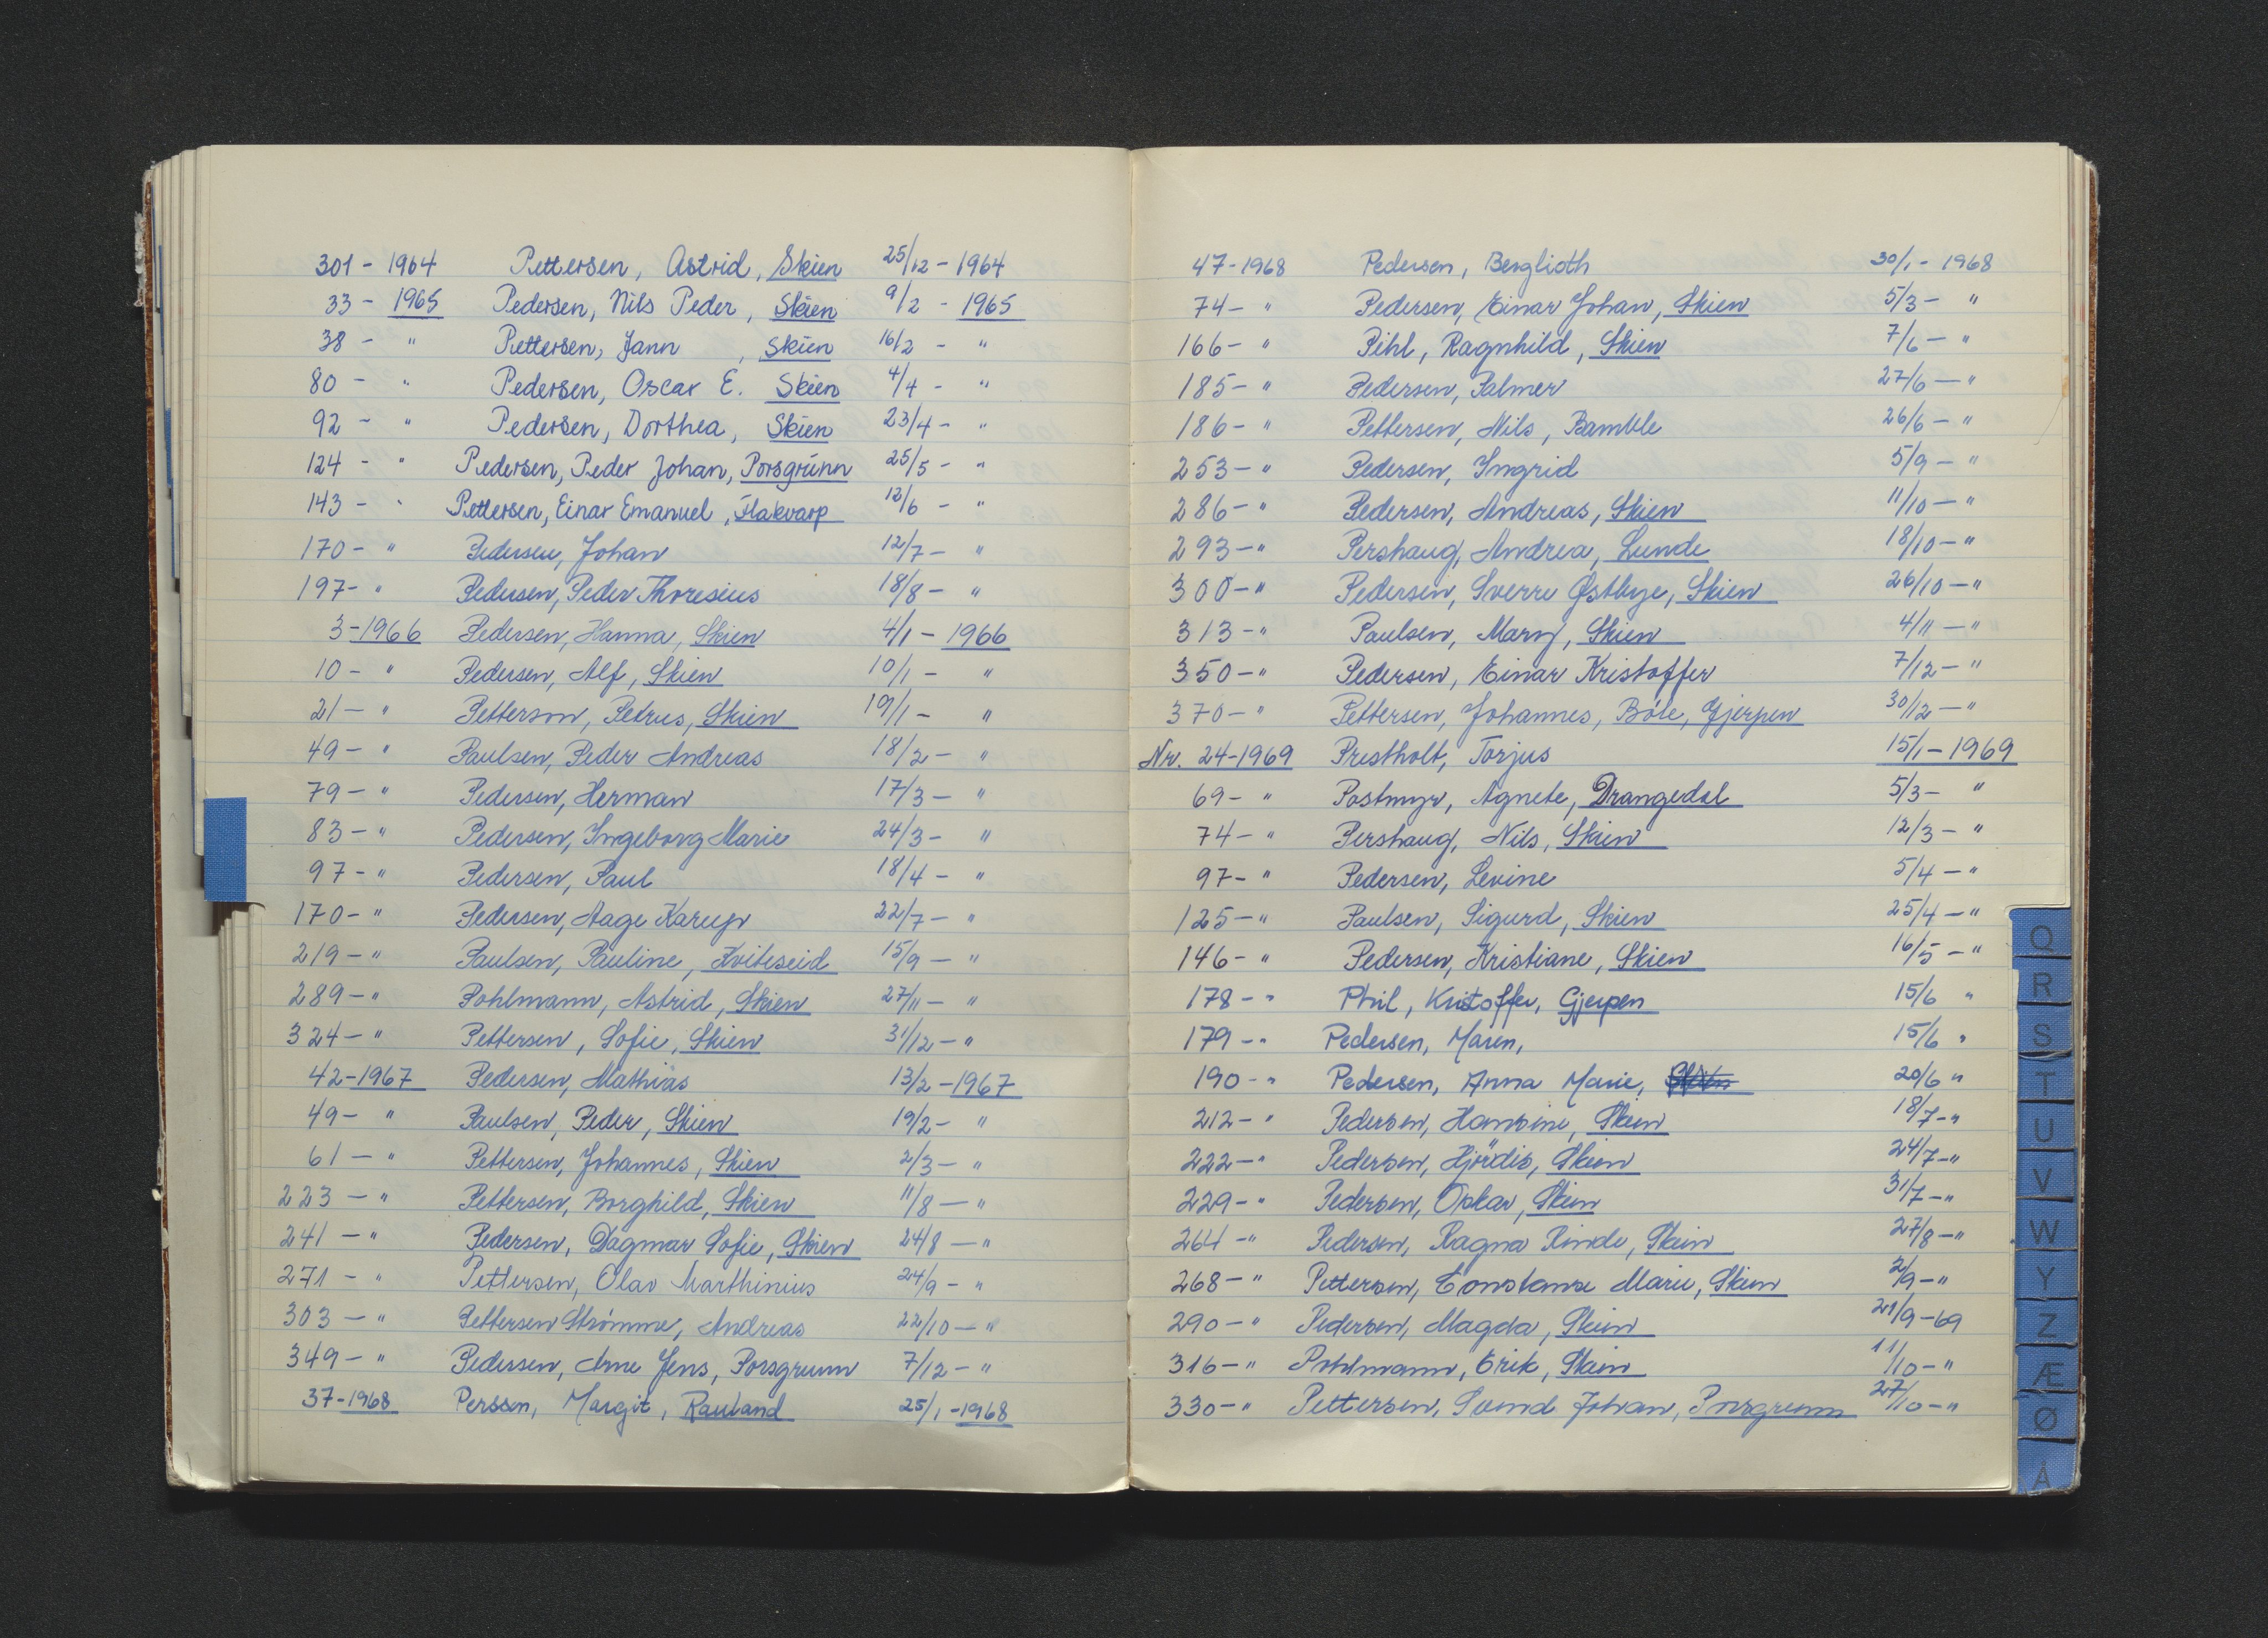 301 - 1964 Pettersen, Astrid, Skien 25/12 - 1964
33 - 1965 Pedersen, Nils Peder, Skien 9/2 - 1965
38 - " Pettersen, Jann, Skien 16/2 - "
80 - " Pedersen, Oscar E. Skien 4/4 - "
92 - " Pedersen, Dorthea, Skien 23/4 - "
124 - " Pedersen, Peder Johan, Porsgrunn 25/5 - "
143 - " Pettersen, Einar Emanuel, Flakvarp 12/6 - "
170 - " Pedersen, Johan 12/7 - "
197 - " Pedersen, Peder Thoresius 18/8 - "
3 - 1966 Pedersen, Hanna, Skien 4/1 - 1966
10 - " Pedersen, Alf, Skien 10/1 - "
21 - " Petterson, Petrus, Skien 19/1 - "
49 - " Paulsen, Peder Andreas 18/2 - "
79 - " Pedersen, Herman 17/3 - "
83 - " Pedersen, Ingeborg Marie 24/3 - "
97 - " Pedersen, Paul 18/4 - "
170 - " Pedersen, Aage Karup 22/7 - "
219 - " Paulsen, Pauline, Kviteseid 15/9 - "
289 - " Pohlmann, Astrid, Skien 27/11 - "
324 - " Pettersen, Sofie, Skien 31/12 - "
42 - 1967 Pedersen, Mathias 13/2 - 1967
49 - " Paulsen, Peder, Skien 19/2 - "
61 - " Pettersen, Johannes, Skien 2/3 - "
223 - " Pettersen, Borghild, Skien 11/8 - "
241 - " Pedersen, Dagmar Sofie, Skien 24/8 - "
271 - " Pettersen, Olav Marthinius 24/9 - "
303 - " Pettersen Strømme, Andreas 22/10 - "
349 - " Pedersen, Arne Jens, Porsgrunn 7/12 - "
37 - 1968 Perssen, Margit, Rauland 25/1 - 1968
47 - 1968 Pedersen, Berglioth 30/1 - 1968
74 - " Pedersen, Einar Johan, Skien 5/3 - "
166 - " Pihl, Ragnhild, Skien 7/6 - "
185 - " Pedersen, Palmer 27/6 - "
186 - " Pettersen, Nils, Bamble 26/6 - "
253 - " Pedersen, Ingrid 5/9 - "
286 - " Pedersen, Andreas, Skien 11/10 - "
293 - " Pershaug, Andrea, Lunde 18/10 - "
300 - " Pedersen, Sverre Østbye, Skien 26/10 - "
313 - " Paulsen, Mary, Skien 4/11 - "
350 - " Pedersen, Einar Kristoffer 7/12 - "
370 - " Pettersen, Johannes, Bøle, Gjerpen 30/12 - "
Nr. 24 - 1969 Prestholt, Torjus 15/1 - 1969
69 - " Postmyr, Agnete, Drangedal 5/3 - "
74 - " Pershaug, Nils, Skien 12/3 - "
97 - " Pedersen, Levine 5/4 - "
125 - " Paulsen, Sigurd, Skien 25/4 - "
146 - " Pedersen, Kristiane, Skien 16/5 - "
178 - " Phil, Kristoffer, Gjerpen 15/6 "
179 - " Pedersen, Maren, 15/6 "
190 - " Pedersen, Anna Marie, 20/6 "
212 - " Pedersen, Hansine, Skien 18/7 - "
222 - " Pedersen, Hjördis, Skien 24/7 - "
229 - " Pedersen, Oskar, Skien 31/7 - "
264 - " Pedersen, Ragna Rinde, Skien 27/8 - "
268 - " Pettersen, Constanse Marie, Skien 2/9 - "
290 - " Pedersen, Magda, Skien 21/9 - 69
316 - " Pohlmann, Erik, Skien 11/10 - "
330 - " Pettersen, Svend Johan, Porsgrunn 27/10 - "
Q
R
S
T
U
V
W
Y
Z
Æ
Ø
Å